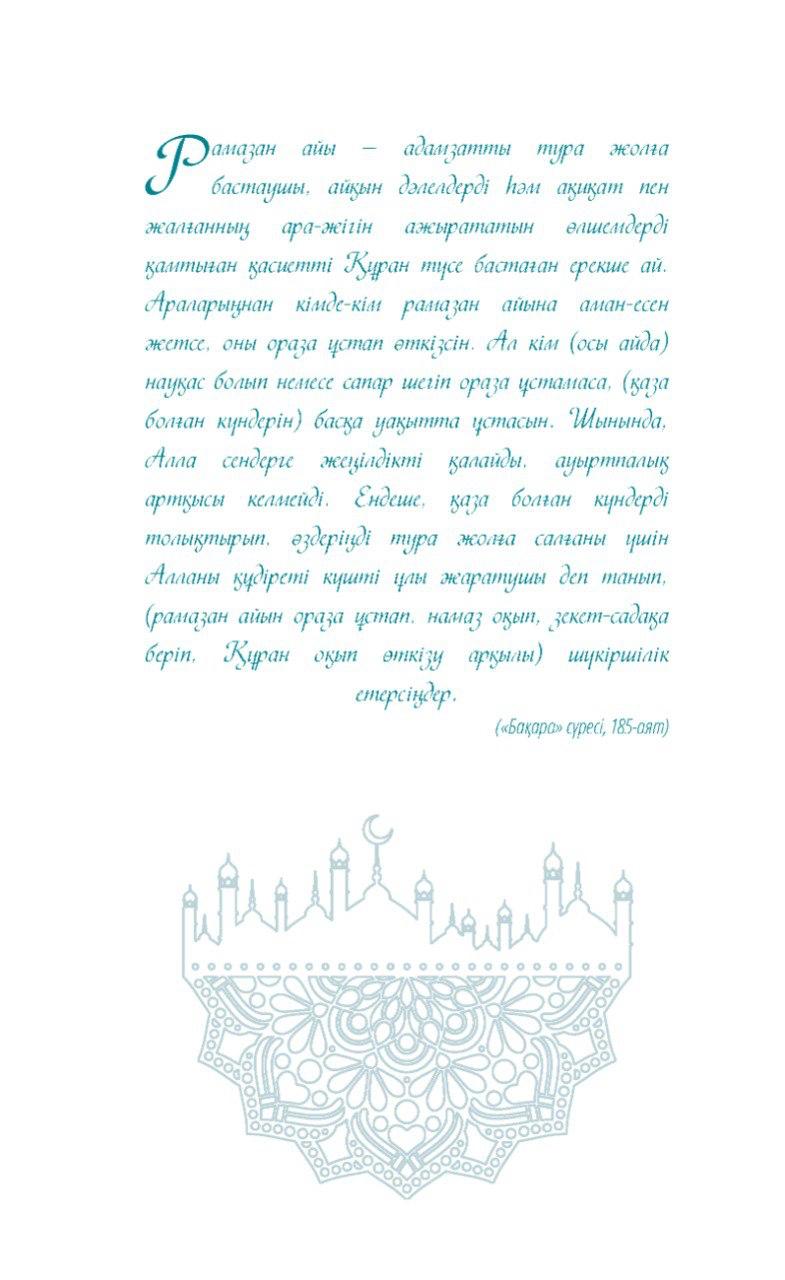 Рамазан айы – адамзатты тура жолға
бастаушы, айқын дәлелдерді һәм ақиқат пен
жалғанның ара-жігін ажырататын өлшемдерді
қамтыған қасиетті Құран түсе бастаған ерекше ай.
Араларыңнан кімде-кім рамазан айына аман-есен
жетсе, оны ораза ұстап өткізсін. Ал кім (осы айда)
науқас болып немесе сапар шегіп ораза ұстамаса, (қаза
болған күндерін) басқа уақытта ұстасын. Шынында,
Алла сендерге жеңілдікті қалайды, ауыртпалық
артқысы келмейді. Ендеше, қаза болған күндерді
толықтырып, өздеріңді тура жолға салғаны үшін
Алланы құдіреті күшті ұлы жаратушы деп танып,
(рамазан айын ораза ұстап, намаз оқып, зекет-садақа
беріп, Құран оқып өткізу арқылы) шүкіршілік
етерсіңдер.
(«Бақара» сүресі, 185-аят)